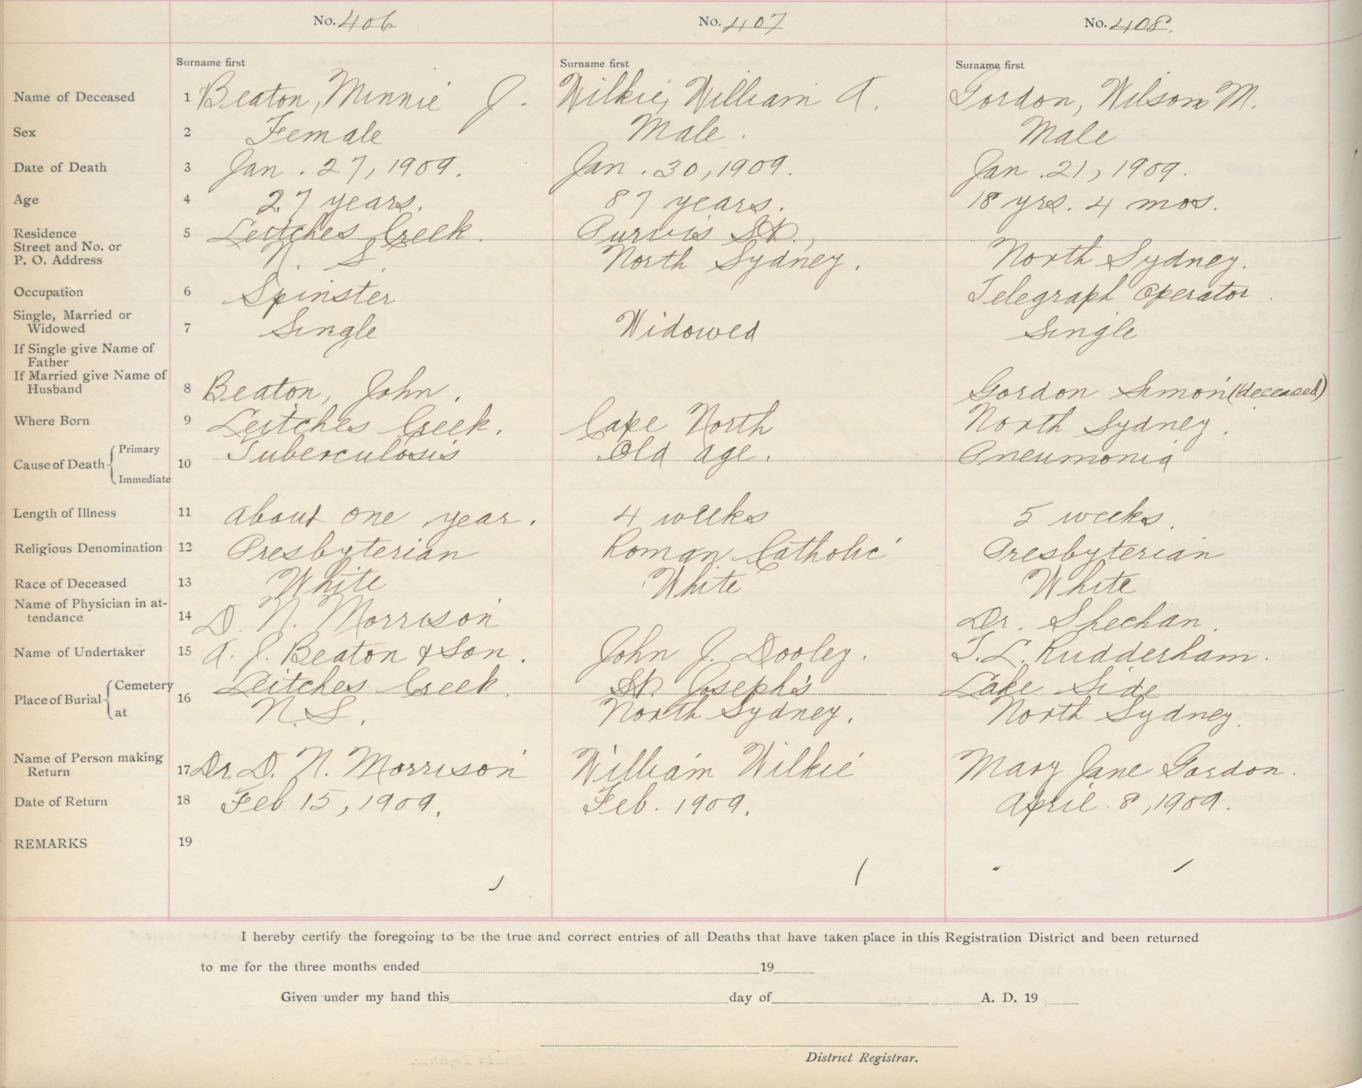 No. 406 No. 407 No. 408.
Surname first Surname first Surname first
Name of Deceased 1 Beaton, Minnie J. Wilkie, William A. Gordon, Wilson M.
Sex 2 Female Male. Male
Date of Death 3 Jan. 27, 1909. Jan. 30, 1909. Jan. 21, 1909.
Age 4 27 years. 87 years. 18 yrs. 4 mos.
Residence 5 Leitches Creek. Purvis St.,
Street and No. or
P. O. Address N. S. North Sydney. North Sydney.
Occupation 6 Spinster Telegraph Operator.
Single, Married or
Widowed 7 Single Widowed Single
If Single give Name of
Father
If Married give Name of
Husband 8 Beaton, John. Gordon Simon (deceased)
Where Born 9 Leitches Creek. Cape North North Sydney.
Cause of Death Primary Tuberculosis Old age. Pneumonia
10
Immediate
Length of Illness 11 about one year. 4 weeks 5 weeks.
Religious Denomination 12 Presbyterian Roman Catholic Presbyterian
Race of Deceased 13 White White White
Name of Physician in at-
tendance 14 D. N. Morrison Dr. Sheehan.
Name of Undertaker 15 A. J. Beaton & Son. John J. Dooley. T. L. Rudderham.
Place of Burial Cemetery 16 Leitches Creek. St. Joseph's Lake Side
at N.S. North Sydney. North Sydney.
Name of Person making
Return 17 Dr. D. N. Morrison William Wilkie Mary Jane Gordon.
Date of Return 18 Feb 15, 1909. Feb. 1909. April 8, 1909.
REMARKS 19
I hereby certify the foregoing to be the true and correct entries of all Deaths that have taken place in this Registration District and been returned
to me for the three months ended 19
Given under my hand this day of A. D. 19
District Registrar.